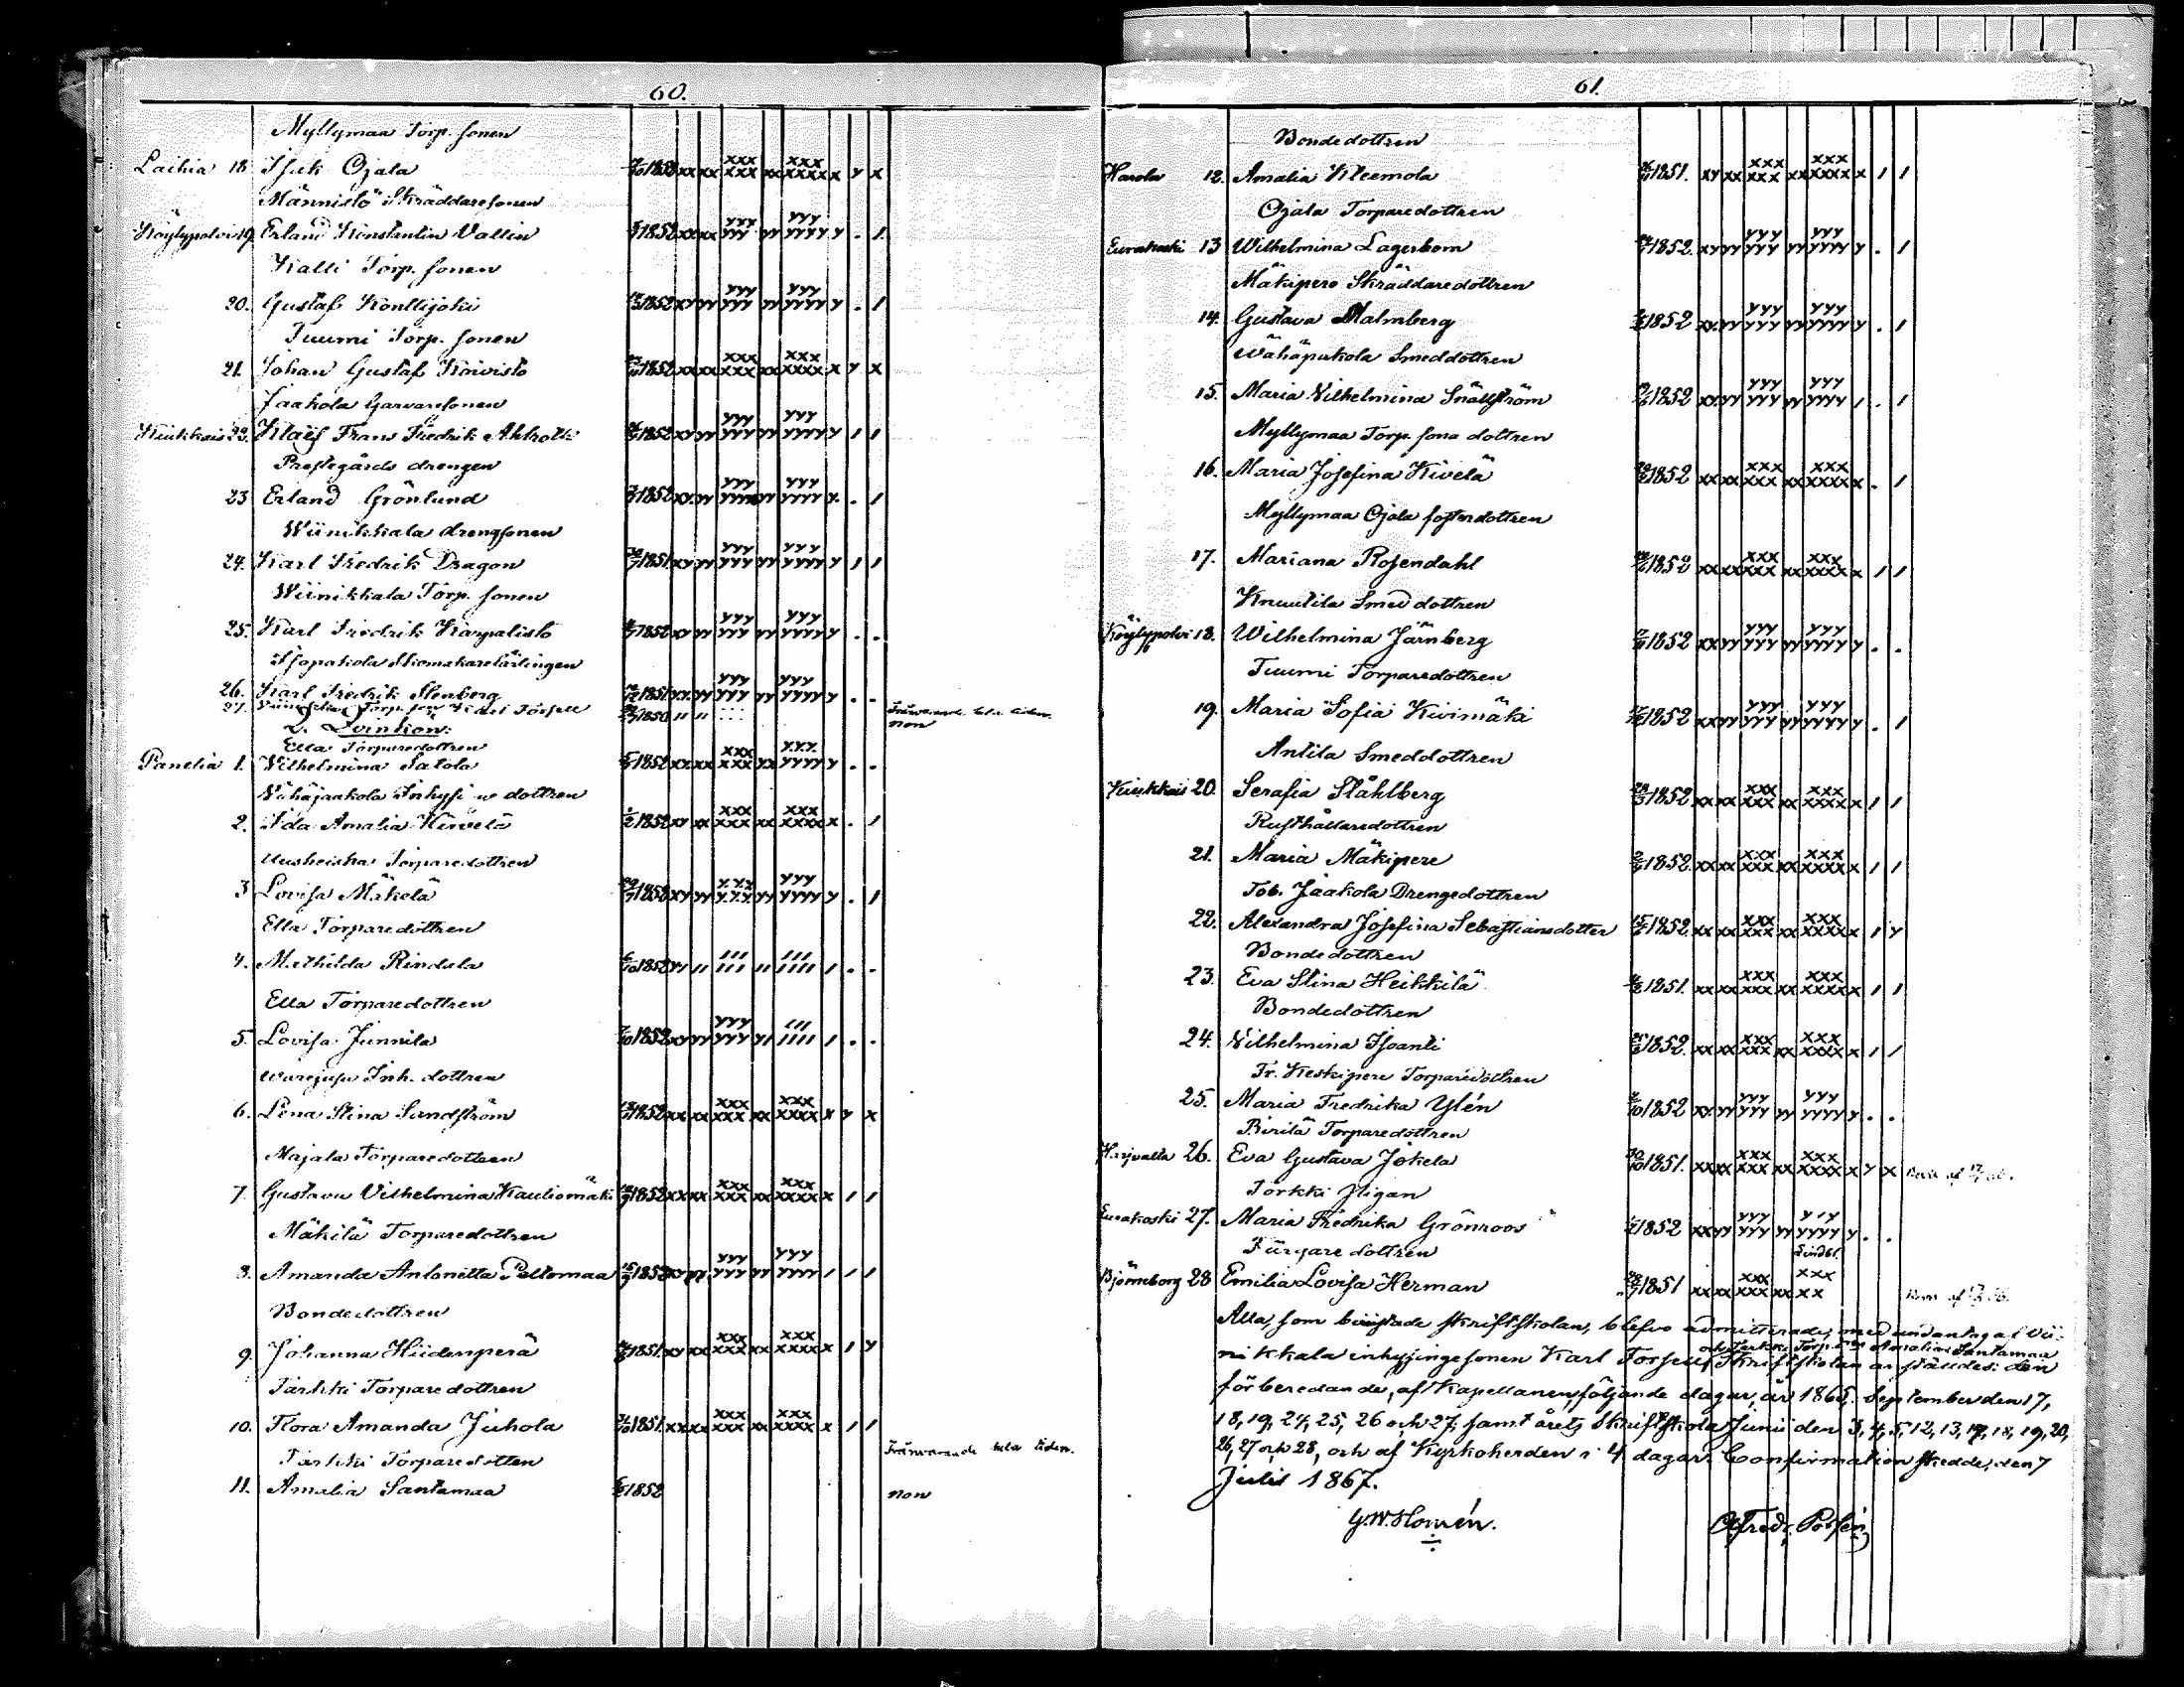 60.
Myllymaa Torp. sonen
Laihia 18. Isak Ojala 1852 xx xx xxx xxx xx xxx xxxx x y x
Männistö Skräddaresonen
Köylypolvi 19. Erland Konstantin Vallin 1852 xx xx yyy yyy yy yyy yyyy y . 1
Kalli Torp. sonen
20. Gustaf Konttijoki 1852 xy yy yyy yyy yy yyy yyyy y . 1
Tuumi Torp. sonen
21. Johan Gustaf Koivisto 1852 xx xx xxx xxx xx xxx xxxx x y x
Jaakola Garvaresonen
Kiukkais 22. Klaes Frans Fredrik Ahlroth 1852 xy yy yyy yyy yy yyy yyyy y 1 1
Prestegårds drengen
23 Erland Grönlund 1852 xx yy yyy yy yyy yyyy . 1
Wiinikkala drengsonen
24. Karl Fredrik Dragon 1851 xy yy yyy yyy yy yyy yyyy y 1 1
Wiinikkala Torp. sonen
25. Karl Fredrik Karpalistö 1852 xy yy yyy yyy yy yyy yyyy y . .
Skomakarelärlingen
26. Karl Fredrik Stenberg 1851 yy yyy yyy yy yyy yyyy y . .
27. Torp. Karl Torsell 1850 " " Frånvarande hela tiden. non
2. Qvinkön:
Ella Torparedottren
Panelia 1. Vilhelmina Satola 1852 xx xx xxx xxx yx yyy yyyy y . .
Vähäjaakola Inhysi dottren
2. Ida Amalia Kivelä 1/2 1852 xy xx xxx xxx xx xxx xxxx x . 1
Torparedottren
3 Lovisa Mäkelä 1852 xy yy yyy yyy yy yyy yyyy y . 1
Ella Torparedottren
4. Mathilda Rindala 6/10 1852 11 111 111 11 111 1111 1 . .
Ella Torparedottren
5. Lovisa Junnila 7/10 1852 xy yy yyy yyy y1 111 1111 1 . .
Inh. dottren
6. Lena Stina Sandström 1852 xx xx xxx xxx xx xxx xxxx x y x
Majala Torparedottren
7. Gustava Vilhelmina Kauliomäki 1852 xx xx xxx xxx xx xxx xxxx x 1 1
Mäkilä Torparedottren
8. Amanda Antonetta Peltomaa 1852 xy yy yyy yyy yy yyy yyyy 1 1 1
Bondedottren
9. Johanna Hiidenperä 1851. xy xx xxx xxx xx xxx xxxx x 1 y
Torkki Torparedottren
10. Flora Amanda Juhola 1851. xx xx xxx xxx xx xxx xxxx x 1 1
Torkki Torparedotten Frånvarande hela tiden.
11. Amalia Santamaa 1852 non
61.
Bondedottren
Harola 12. Amalia Kleemola 1851. xy xx xxx xxx xx xxx xxxx x 1 1
Ojala Torparedottren
Eurakoski 13 Wilhelmina Lagerbom 1852. xy yy yyy yyy yy yyy yyyy y . 1
Mäkipere Skräddaredottren
14. Gustava Malmberg 1852 xx yy yyy yyy yy yyy yyyy y . 1
Wähäpukola Smeddottren
15. Maria Vilhelmina Snällström 1852 xx yy yyy yyy yy yyy yyyy 1 . 1
Myllymaa Torp. sona dottren
16. Maria Josefina Kivelä 1852 xx xx xxx xxx xx xxx xxxx x . 1
Myllymaa Ojala fosterdottren
17. Mariana Rosendahl 1852 xx xx xxx xxx xx xxx xxxx x 1 1
Knuutila Smed dottren
Köylypolvi 18. Wilhelmina Järnberg 1852 xx yy yyy yyy yy yyy yyyy y . .
Tuumi Torparedottren
19. Maria Sofia Kivimäki 1852 xx yy yyy yyy yy yyy yyyy y . 1
Antila Smeddottren
Kiukkais 20. Serafia Ståhlberg 1852 xx xx xxx xxx xx xxx xxxx x 1 1
Rusthållaredottren
21. Maria Mäkipere 1852. xx xx xxx xxx xx xxx xxxx x 1 1
Tob. Jaakola Drengedottren
22. Alexandra Josefina Sebastiansdotter 1852 xx xx xxx xxx xx xxx xxxx x 1 y
Bondedottren
23. Eva Stina Heikkilä 1851. xx xx xxx xxx xx xxx xxxx x 1 1
Bondedottren
24. Vilhelmina Isoanti 1852. xx xx xxx xxx xx xxx xxxx x 1 1
Fr. Keskipere Torparedottren
25. Maria Fredrika Ylén 1852 xx yy yyy yyy yy yyy yyyy y . .
Pirilä Torparedottren
Harjvalta 26. Eva Gustava Jokela 30/10 1851. xx xx xxx xxx xx xxx xxxx x y x
Torkki pigan
Eurakoski 27. Maria Fredrika Grönroos 1852 xx yy yyy yyy yy yyyy y . .
Färgare dottren
Björneborg 28 Emilia Lovisa Herman 1851 xx xx xxx xxx xx xxx xx
Alla, som bivistade skriftskolan, blefvo admitterade, med undantag af Vii-
nikkala inhysingesonen Karl Torsell och Torkki Torp. Amalia Santamaa Skriftskolan anställdes: den
förberedande, af Kapellanen, följande dagar, år 1865, September den 17,
18, 19, 24, 25, 26 och 27, samt årets Skriftskola Junii den 3, 4, 5, 12, 13, 17, 18, 19, 20,
26, 27 och 28, och af Kyrkoherden i 4 dagar. Confirmation skedde den 7
Julii 1867.
G.W. Homén. Alfred. Polsén